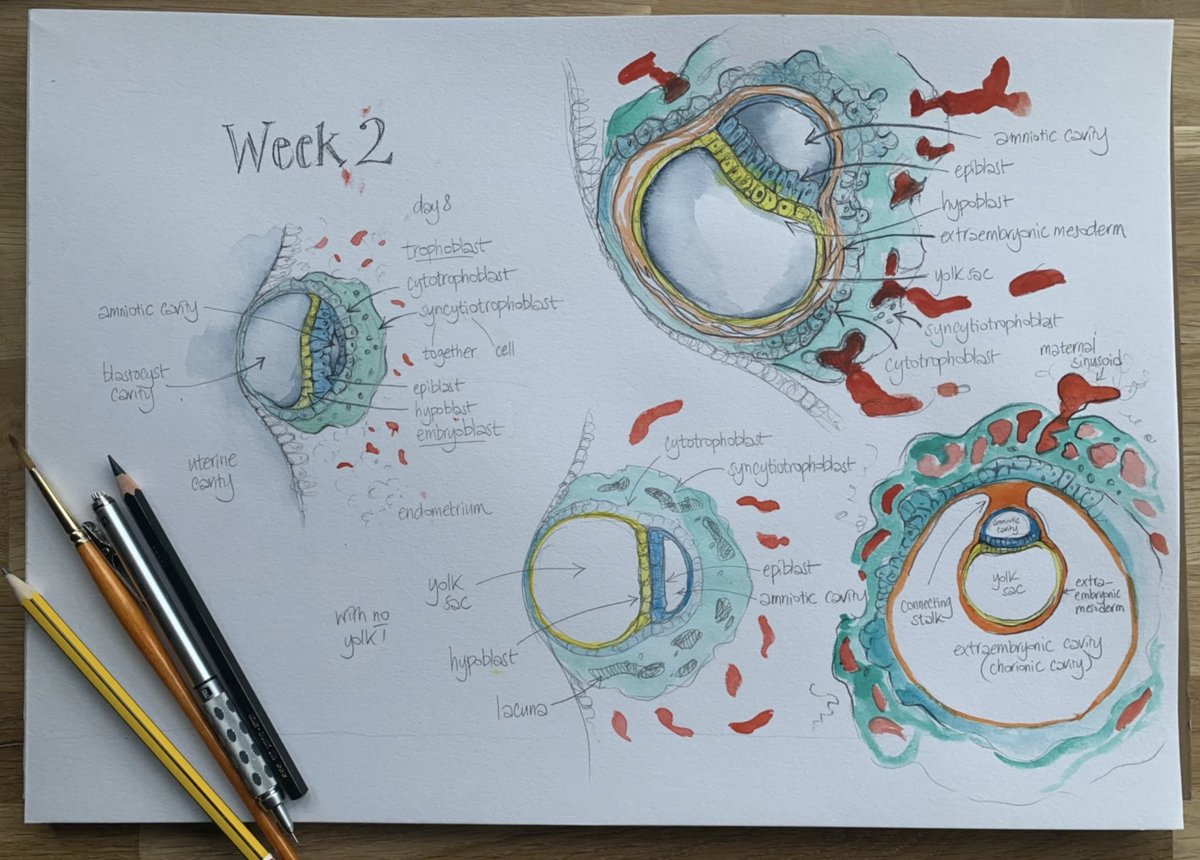 Week 2
day 8
trophoblast
cytotrophoblast
syncytiotrophoblast
together
cell
epiblast
hypoblast
embryoblast
endometrium
amniotic cavity
blastocyst
cavity
uterine
cavity
amniotic cavity
epiblast
hypoblast
extraembryonic mesoderm
yolk sac
syncytiotrophoblast
cytotrophoblast
cytotrophoblast
syncytiotrophoblast
epiblast
amniotic cavity
yolk
sac
with no
yolk!
hypoblast
lacuna
maternal
sinusoid
amniotic
cavity
yolk
sac
connecting
stalk
extra-
embryonic
mesoderm
extraembryonic cavity
(chorionic cavity)